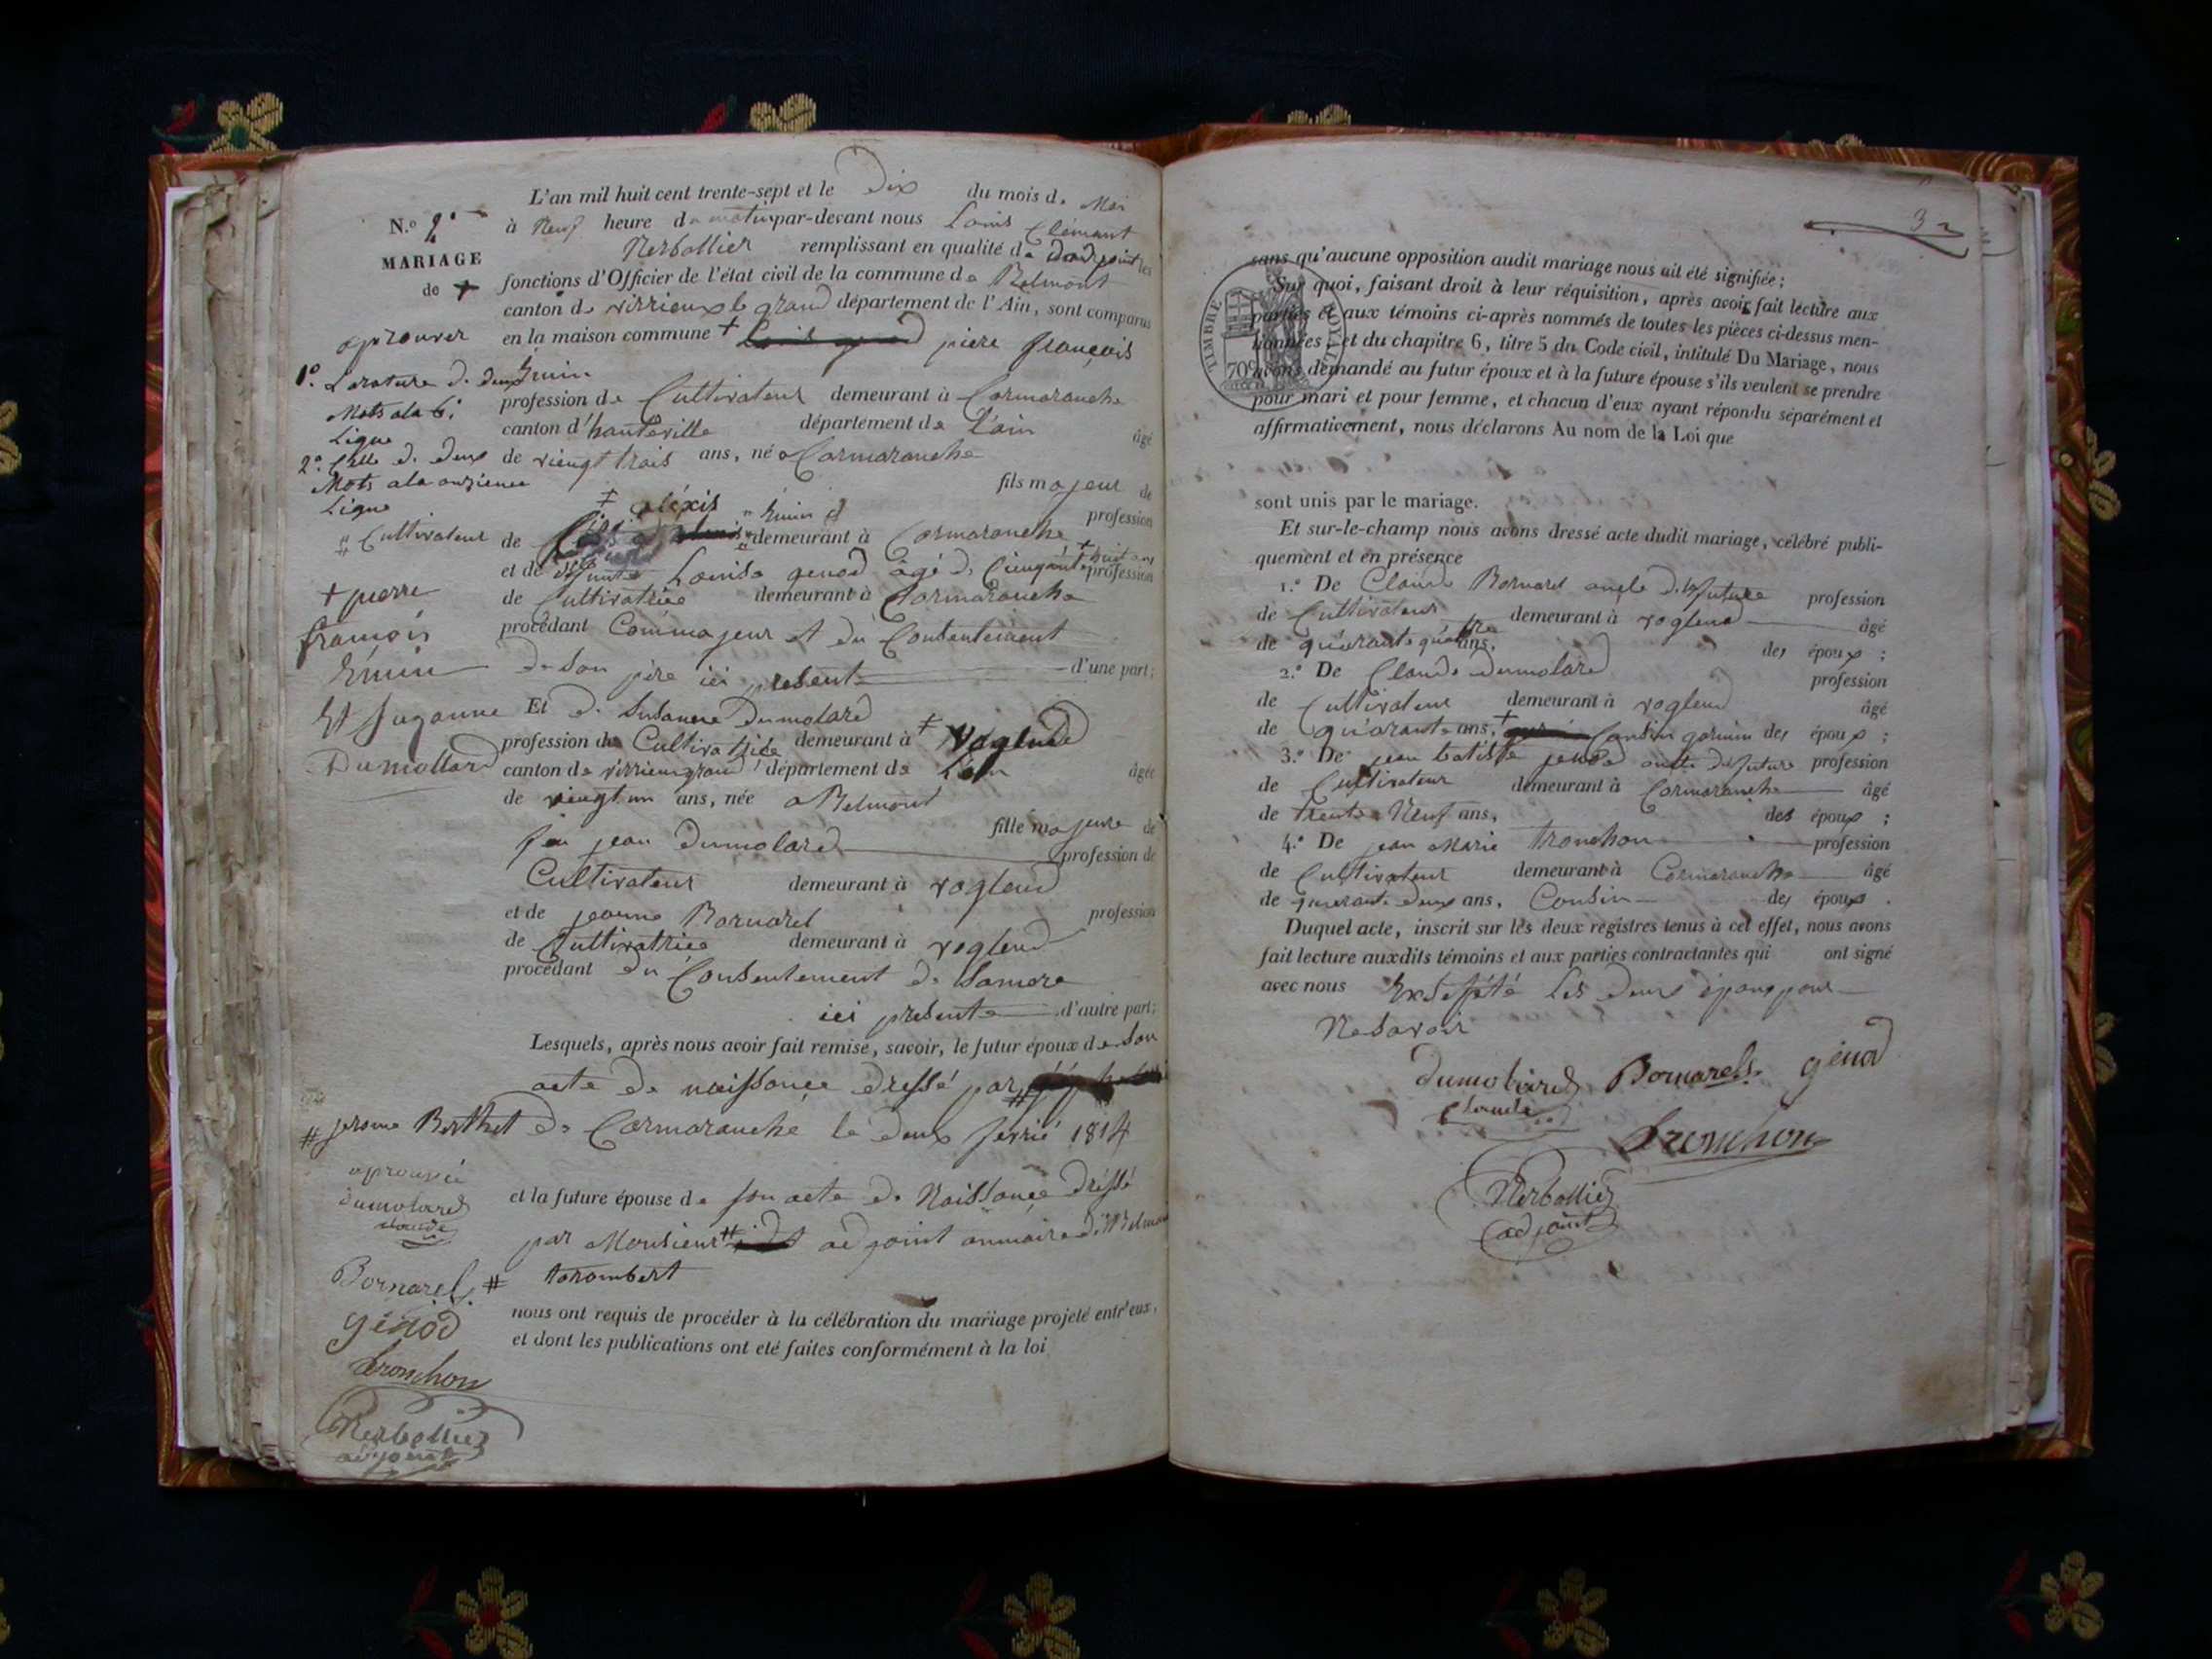 L'an mil huit cent trente-sept et le Dix du mois de Mai
N.o 2.
à Neuf heure de matin par-devant nous Louis Clémant
Nerbollier remplissant en qualité de dadjoint les
MARIAGE
fonctions d'Officier de l'état civil de la commune de Belmont
de +
canton de virrieux le grand département de l'Ain, sont comparus
en la maison commune + piere françois
aprouver
1o. Larature de deux
Émin
Mots ala 6.
profession de Cultivateur demeurant à Cormaranche
Ligne
canton d'hauteville département de L'ain âgé
2o. Celle de deux
de viengt trois ans, né a Cormaranche
Mots ala onzieme
fils majeur de
Ligne
‡ aléxis Émin
profession
" Cultivateur
de demeurant à Cormaranche
et de Louise genod âgé de Cinquante + huit ans profession
+ pierre
de Cultivatrice demeurant à Cormaranche
françois
procédant Commajeur et du Contentement
Émin
de Son père ici présent d'une part;
Et Suzanne
Et de Susanne Dumolard
Dumollard
profession de Cultivatrice demeurant à + Voglend
canton de virrieugrand département de L'ain âgée
de viengt un ans, née a Belmont
fille majeure de
feu jean Dumolard profession de
Cultivateur demeurant à voglend
et de jeanne Bornarel profession
de Cultivatrice demeurant à voglend
procédant du Consentement de Samere
ici présente d'autre part;
Lesquels, après nous avoir fait remise, savoir, le futur époux de Son
acte de naissance dressé par
# jerome Berthet de Cormaranche le deux fevrié 1814
aprouvée
dumolard
claude
et la future épouse de son acte de Naissance dréssé
par Monsieur # adjoint aumaire de Belmont
Bornarel
# tarombert
génod
nous ont requis de procéder à la célébration du mariage projeté entr'eux,
et dont les publications ont eté faites conformément à la loi
Tronchon
Nerbollier
adjoint
32
sans qu'aucune opposition audit mariage nous ait été signifiée;
Sur quoi, faisant droit à leur réquisition, après avoir fait lecture aux
parties et aux témoins ci-après nommés de toutes les pièces ci-dessus men-
tionnées, et du chapitre 6, titre 5 du Code civil, intitulé Du Mariage, nous
avons demandé au futur époux et à la future épouse s'ils veulent se prendre
pour mari et pour femme, et chacun d'eux ayant répondu séparément et
affirmativement, nous déclarons Au nom de la Loi que
TIMBRE ROYAL
70c
sont unis par le mariage.
Et sur-le-champ nous avons dressé acte dudit mariage, célébré publi-
quement et en présence
1.o De Claude Bornarel oncle de la future profession
de Cultivateur demeurant à voglend âgé
de quarante quatre ans, des époux ;
2.o De Claude dumolard profession
de Cultivateur demeurant à voglend âgé
de quarante ans, + Cousin gormin des époux ;
3.o De jean batiste jenod oncle du future profession
de Cultivateur demeurant à Cormaranche âgé
de trente Neuf ans, des époux ;
4.o De jean Marie Tronchon profession
de Cultivateur demeurant à Cormaranche âgé
de quarante deux ans, Cousin des époux .
Duquel acte, inscrit sur les deux registres tenus à cet effet, nous avons
fait lecture auxdits témoins et aux parties contractantes qui ont signé
avec nous Exsépté Les deux époux pour
Nesavoir
dumolard Bornarel génod
claude
Tronchon
Nerbollier
adjoint